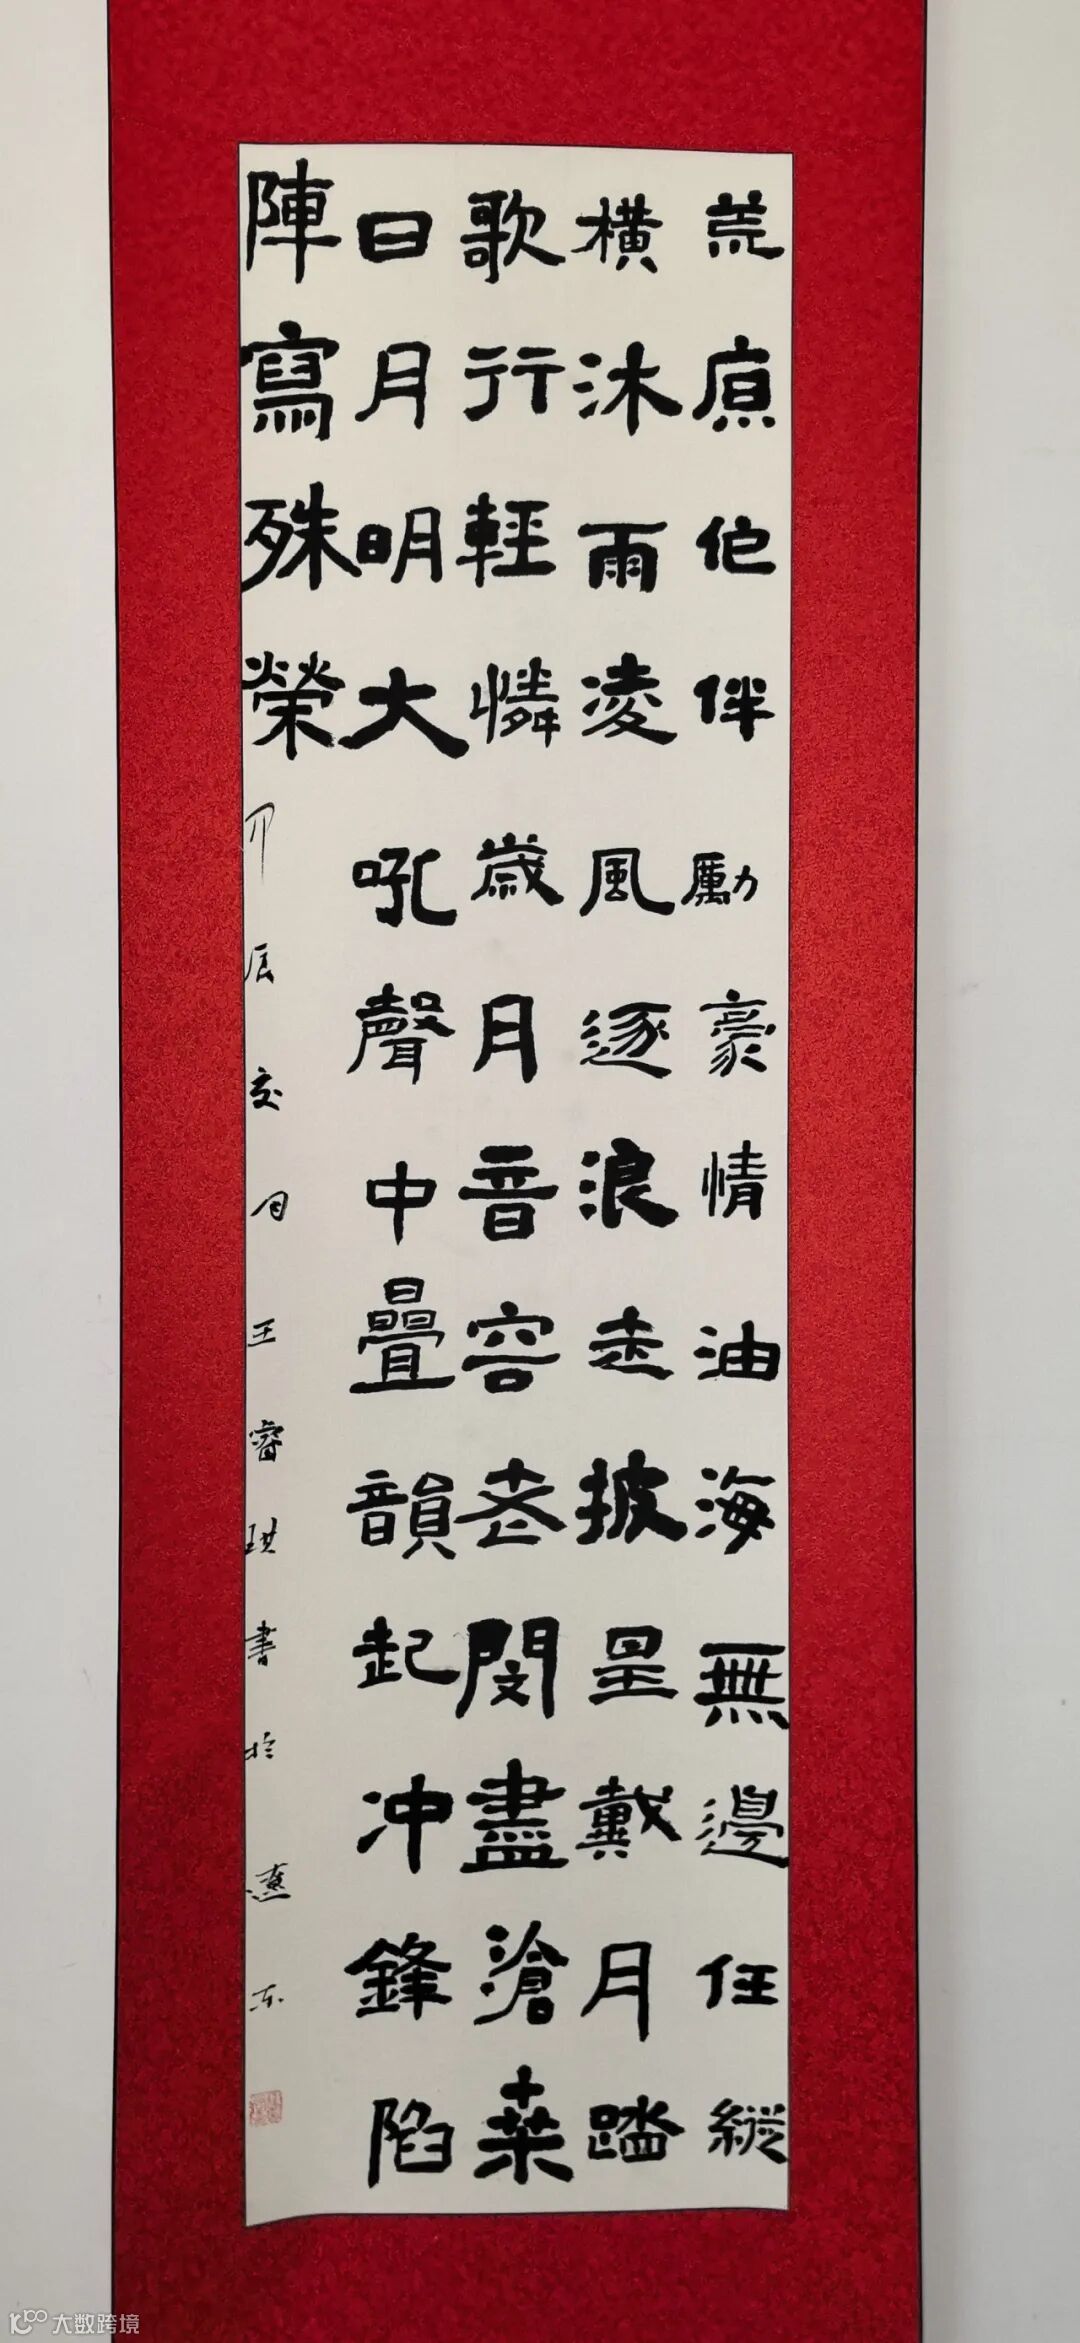 荒原作伴勵豪情油海無邊任縱
橫沐雨凌風逐浪走披星戴月踏
歌行輕憐歲月音容老閔盡滄桑
日月明大吼聲中疊韻起冲鋒陷
陣寫殊榮
甲辰月王睿琪書於遼東
大数跨境